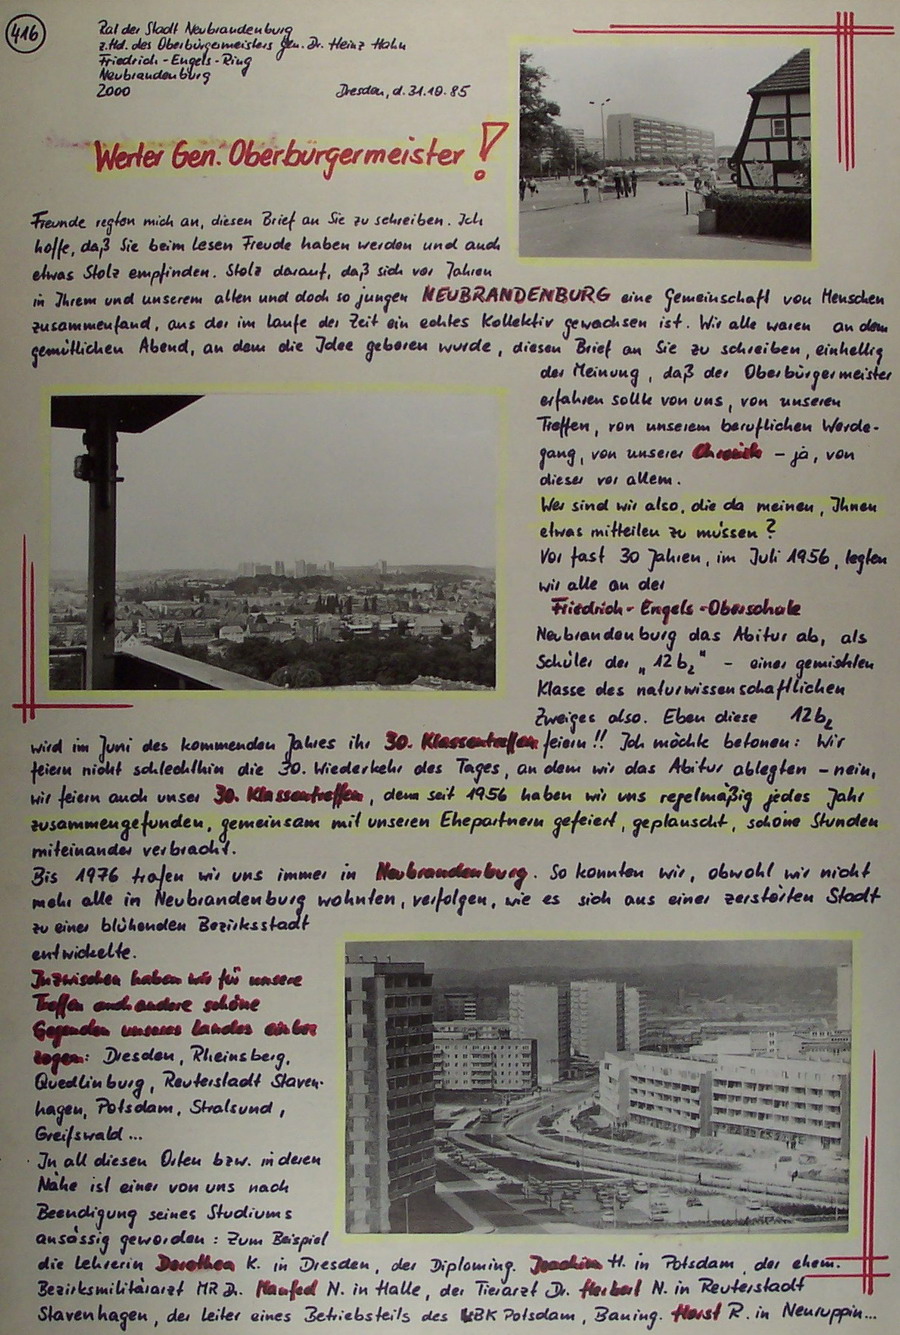 416
Rat der Stadt Neubrandenburg
z.Hd. des Oberbürgermeisters Gen. Dr. Heinz Hahn
Friedrich-Engels-Ring
Neubrandenburg
2000
Dresden, d. 31.10.85
Werter Gen. Oberbürgermeister!
Freunde regten mich an, diesen Brief an Sie zu schreiben. Ich
hoffe, daß Sie beim Lesen Freude haben werden und auch
etwas Stolz empfinden. Stolz darauf, daß sich vor Jahren
in Ihrem und unserem alten und doch so jungen NEUBRANDENBURG eine Gemeinschaft von Menschen
zusammenfand, aus der im Laufe der Zeit ein echtes Kollektiv gewachsen ist. Wir alle waren an dem
gemütlichen Abend, an dem die Idee geboren wurde, diesen Brief an Sie zu schreiben, einhellig
der Meinung, daß der Oberbürgermeister
erfahren sollte von uns, von unseren
Treffen, von unserem beruflichen Werde-
gang, von unserer Chronik - ja, von
dieser vor allem.
Wer sind wir also, die da meinen, Ihnen
etwas mitteilen zu müssen?
Vor fast 30 Jahren, im Juli 1956, legten
wir alle an der
Friedrich-Engels-Oberschule
Neubrandenburg das Abitur ab, als
Schüler der "12b2" - einer gemischten
Klasse des naturwissenschaftlichen
Zweiges also. Eben diese 12b2
wird im Juni des kommenden Jahres ihr 30. Klassentreffen feiern!! Ich möchte betonen: Wir
feiern nicht schlechthin die 30. Wiederkehr des Tages, an dem wir das Abitur ablegten - nein,
wir feiern auch unser 30. Klassentreffen, denn seit 1956 haben wir uns regelmäßig jedes Jahr
zusammengefunden, gemeinsam mit unseren Ehepartnern gefeiert, geplauscht, schöne Stunden
miteinander verbracht.
Bis 1976 trafen wir uns immer in Neubrandenburg. So konnten wir, obwohl wir nicht
mehr alle in Neubrandenburg wohnten, verfolgen, wie es sich aus einer zerstörten Stadt
zu einer blühenden Bezirksstadt
entwickelte.
Inzwischen haben wir für unsere
Treffen auch andere schöne
Gegenden unseres Landes einbe
zogen: Dresden, Rheinsberg,
Quedlinburg, Reuterstadt Staven-
hagen, Potsdam, Stralsund,
Greifswald...
In all diesen Orten bzw. in deren
Nähe ist einer von uns nach
Beendigung seines Studiums
ansässig geworden: Zum Beispiel
die Lehrerin Dorothea K. in Dresden, der Diploming. Joachim H. in Potsdam, der ehem.
Bezirksmilitärarzt MR Dr. Manfred N. in Halle, der Tierarzt Dr. Herbert N. in Reuterstadt
Stavenhagen, der Leiter eines Betriebsteils des WBK Potsdam, Bauing. Horst R. in Neuruppin...